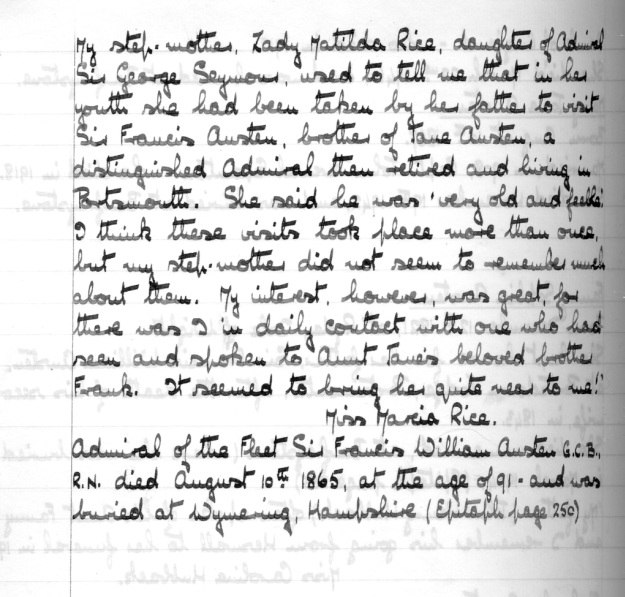 My step-mother, Lady Matilda Rice, daughter of Admiral
Sir George Seymour, used to tell me that in her
youth she had been taken by her father to visit
Sir Francis Austen, brother of Jane Austen, a
distinguished Admiral then retired and living in
Portsmouth. She said he was 'very old and feeble'
I think these visits took place more than once,
but my step-mother did not seem to remember much
about them. My interest, however, was great, for
there was I in daily contact with one who had
seen and spoken to Aunt Jane's beloved brother
Frank. It seemed to bring her quite near to me!"
Miss Marcia Rice.
Admiral of the Fleet Sir Francis William Austen G.C.B.,
R.N. died August 10th 1865, at the age of 91 - and was
buried at Wymering, Hampshire (Epitaph page 250)